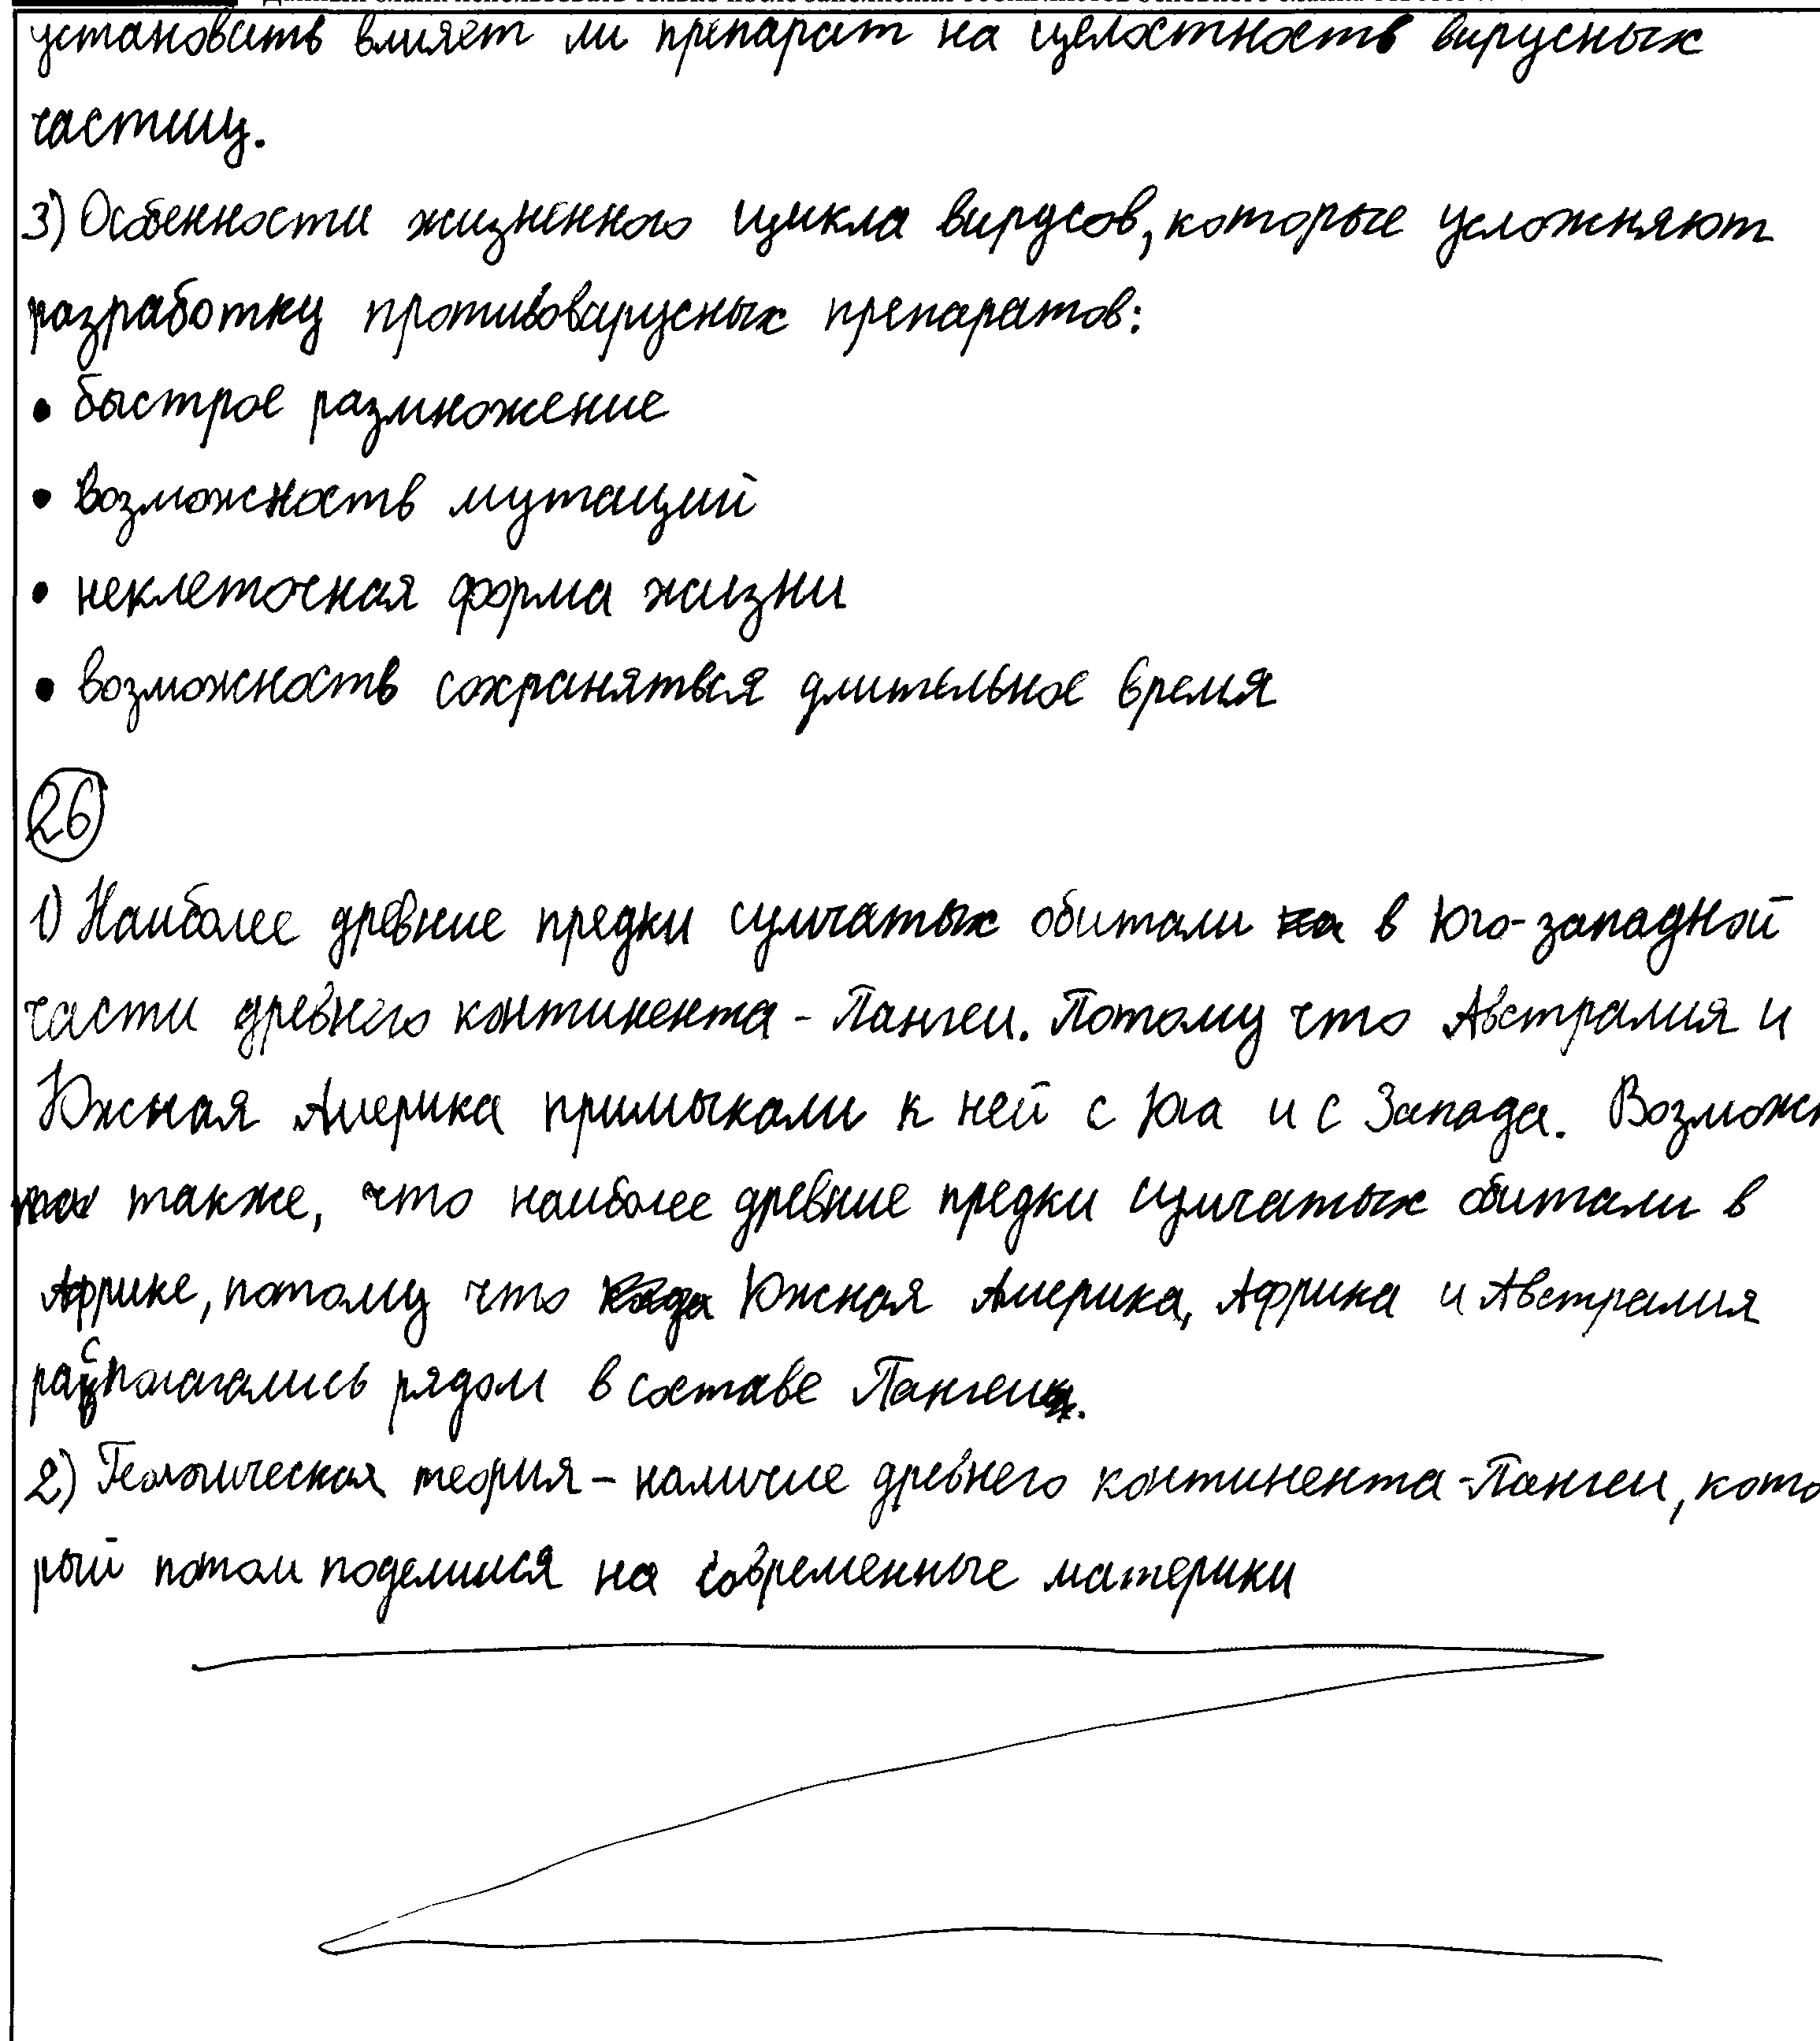 установить влияет ли препарат на целостность вирусных
частиц.
3) Особенности жизненного цикла вирусов, которые усложняют
разработку противовирусных препаратов:
• быстрое размножение
• возможность мутаций
• неклеточная форма жизни
• возможность сохраняться длительное время
26
1) Наиболее древние предки сумчатых обитали на в Юго-западной
части древнего континента - Пангеи. Потому что Австралия и
Южная Америка примыкали к ней с Юга и с Запада. Возможн
также, что наиболее древние предки сумчатых обитали в
Африке, потому что когда Южная Америка, Африка и Австралия
располагались рядом в составе Пангеи.
2) Геологическая теория - наличие древнего континента - Пангеи, кото
рый потом поделился на современные материки